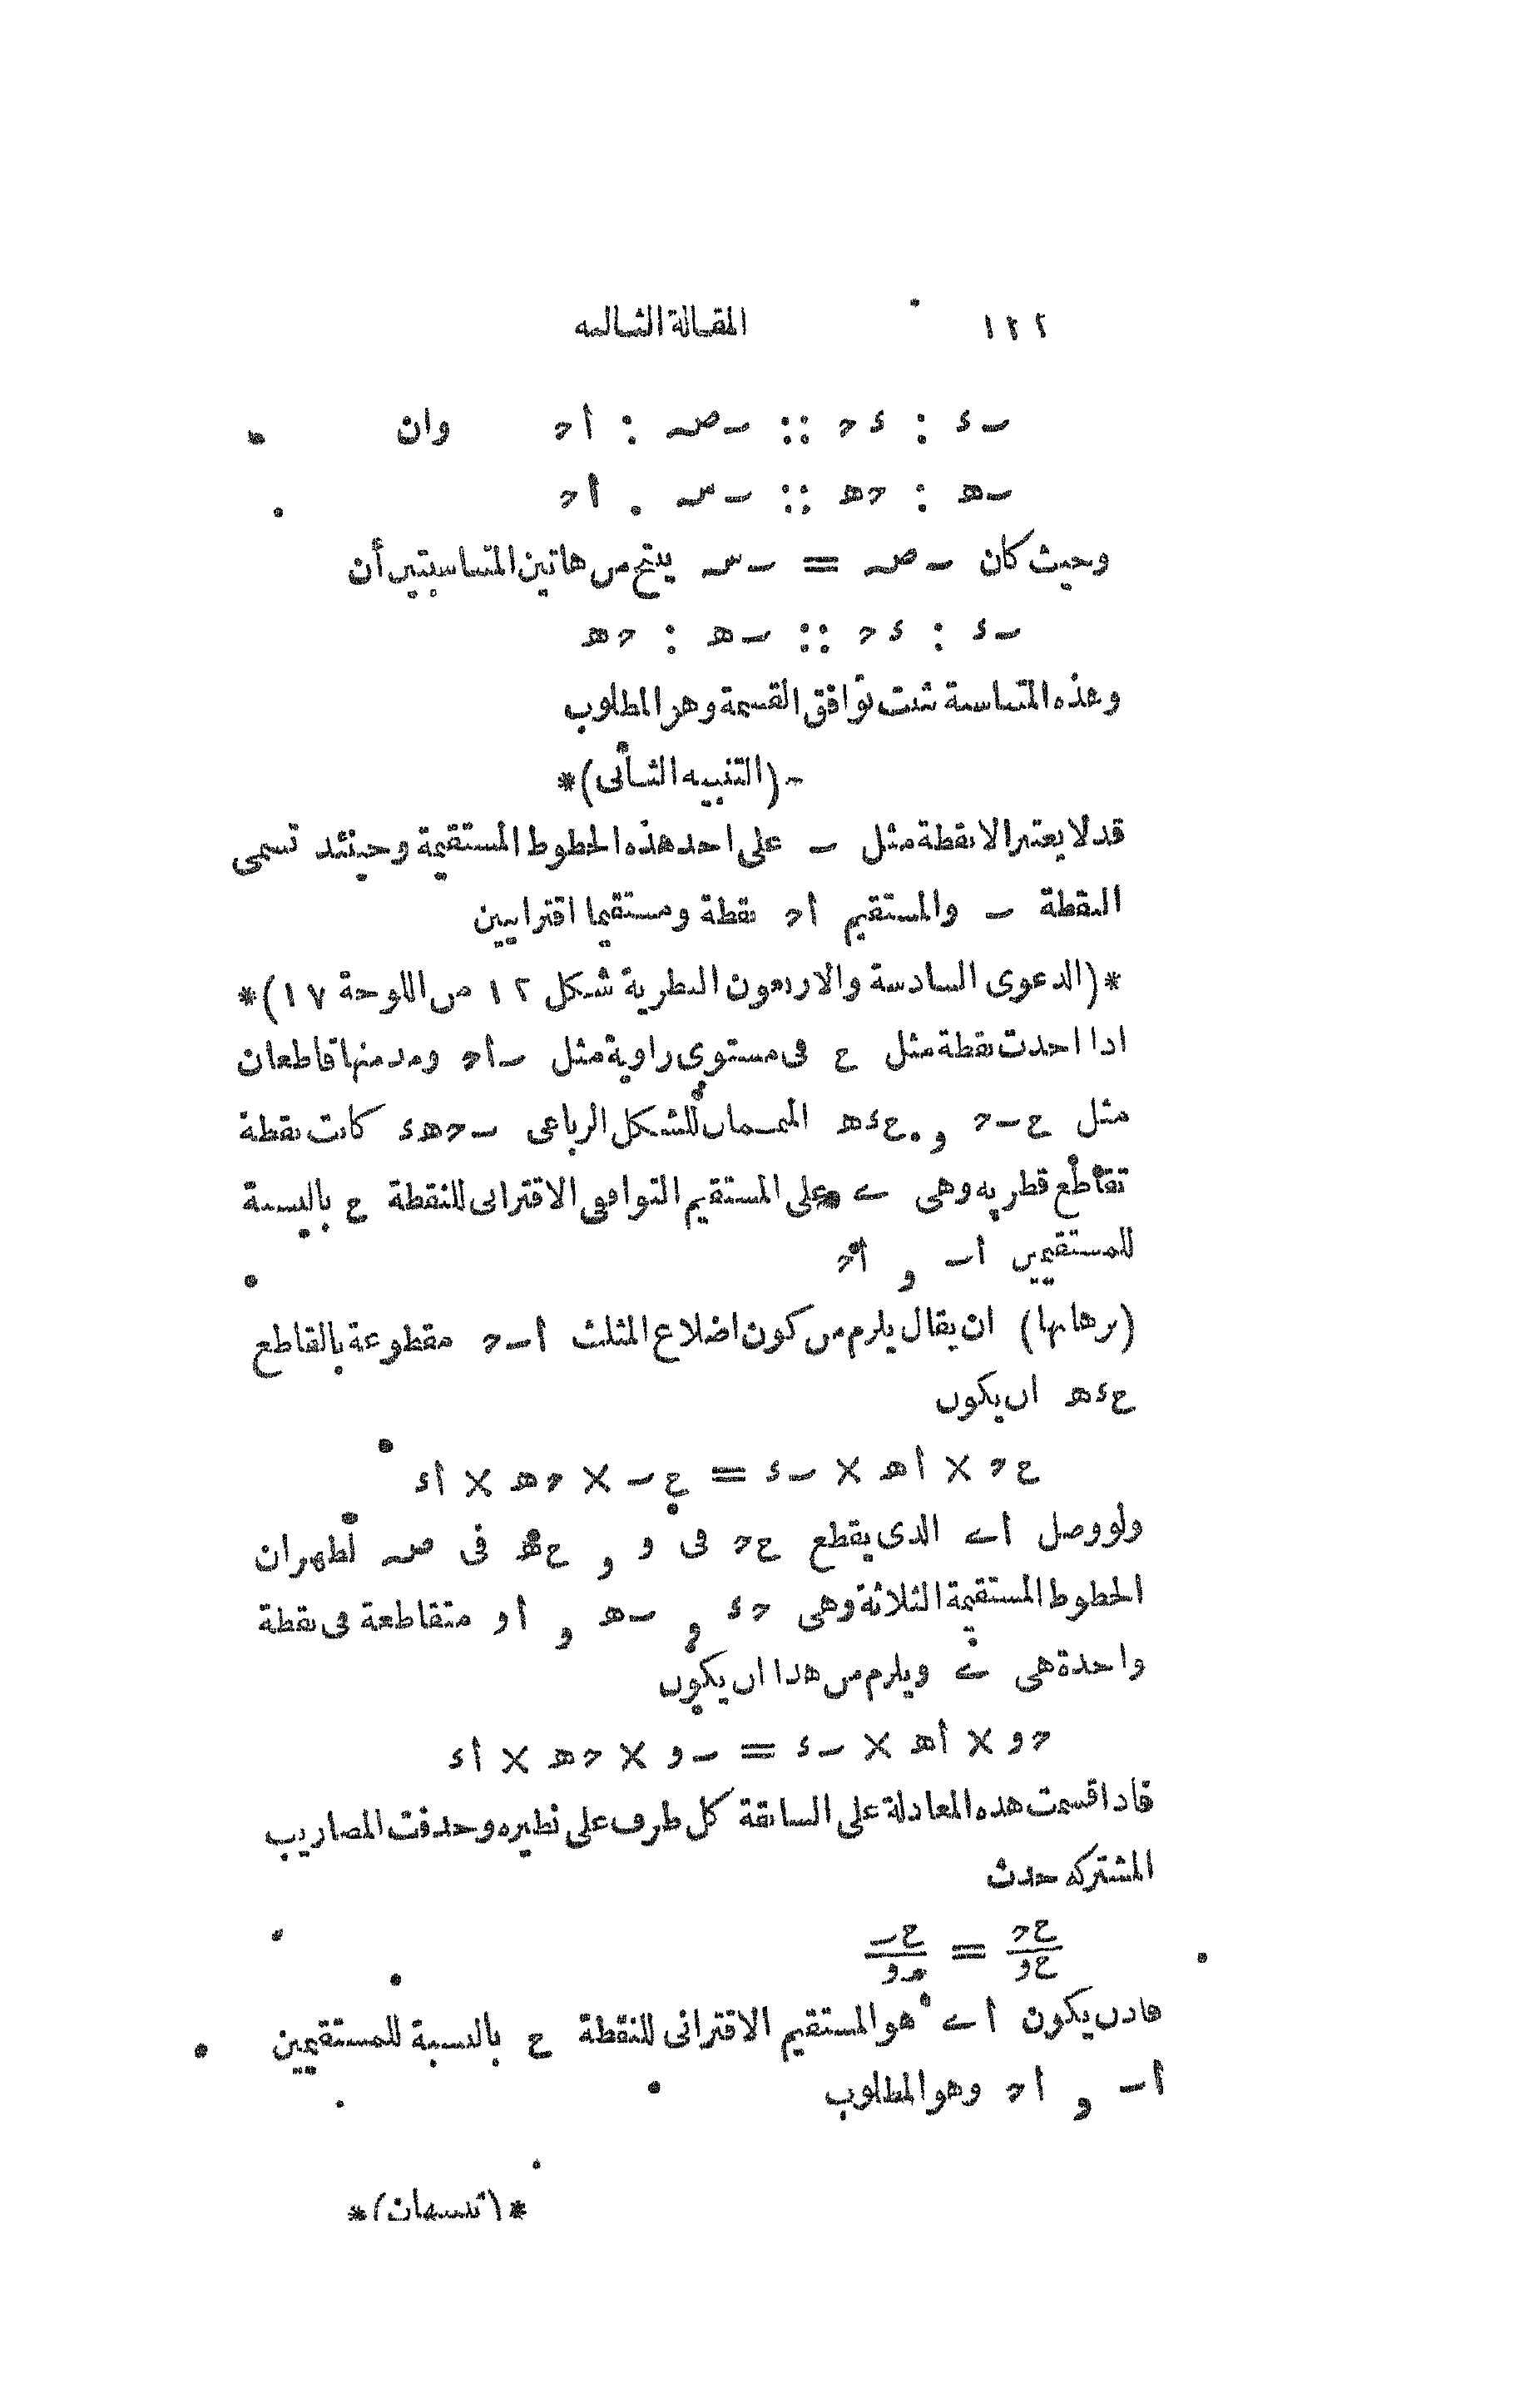 ١٢٢ المقالة الثالثة
ٮء : ءح :: ٮصـ : أح وان
ٮه : حه :: ٮسـ : أح
وحيث كان ٮصـ = ٮسـ ينتج من هاتين المتناسبتين أن
ٮء : ءح :: ٮه : حه
وهذه المتناسبة تثبت توافق القسمة وهو المطلوب
*(التنبيه الثانى)*
قد لا يعتبر الا نقطة مثل ٮ على احد هذه الخطوط المستقيمة وحينئذ تسمى
النقطة ٮ والمستقيم أح نقطة ومستقيما اقترانيين
*(الدعوى السادسة والاربعون النظرية شكل ١٢ من اللوحة ١٧)*
اذا احدت نقطة مثل ع فى مستوى زاوية مثل ٮأح ومد منها قاطعان
مثل عٮح و عءه المتممان للشكل الرباعى ٮحهء كانت نقطة
تقاطع قطريه وهى ے على المستقيم التوافقى الاقترانى للنقطة ع بالنسبة
للمستقيمين أٮ و أح
(برهانها) ان يقال يلزم من كون اضلاع المثلث أٮح مقطوعة بالقاطع
عءه ان يكون
عح × أه × ٮء = عٮ × حه × أء
ولو وصل أے الذى يقطع عح فى و و عه فى صـ لظهر ان
الخطوط المستقيمة الثلاثة وهى حء و ٮه و أو متقاطعة فى نقطة
واحدة هى ے ويلزم من هذا ان يكون
حو × أه × ٮء = ٮو × حه × أء
فاذا قسمت هذه المعادلة على السابقة كل طرف على نظيره وحذفت المضاريب
المشتركه حدث
عح/عو = عٮ/مو
فاذن يكون أے هو المستقيم الاقترانى للنقطة ع بالنسبة للمستقيمين
أٮ و أح وهو المطلوب
*(تنبيهان)*